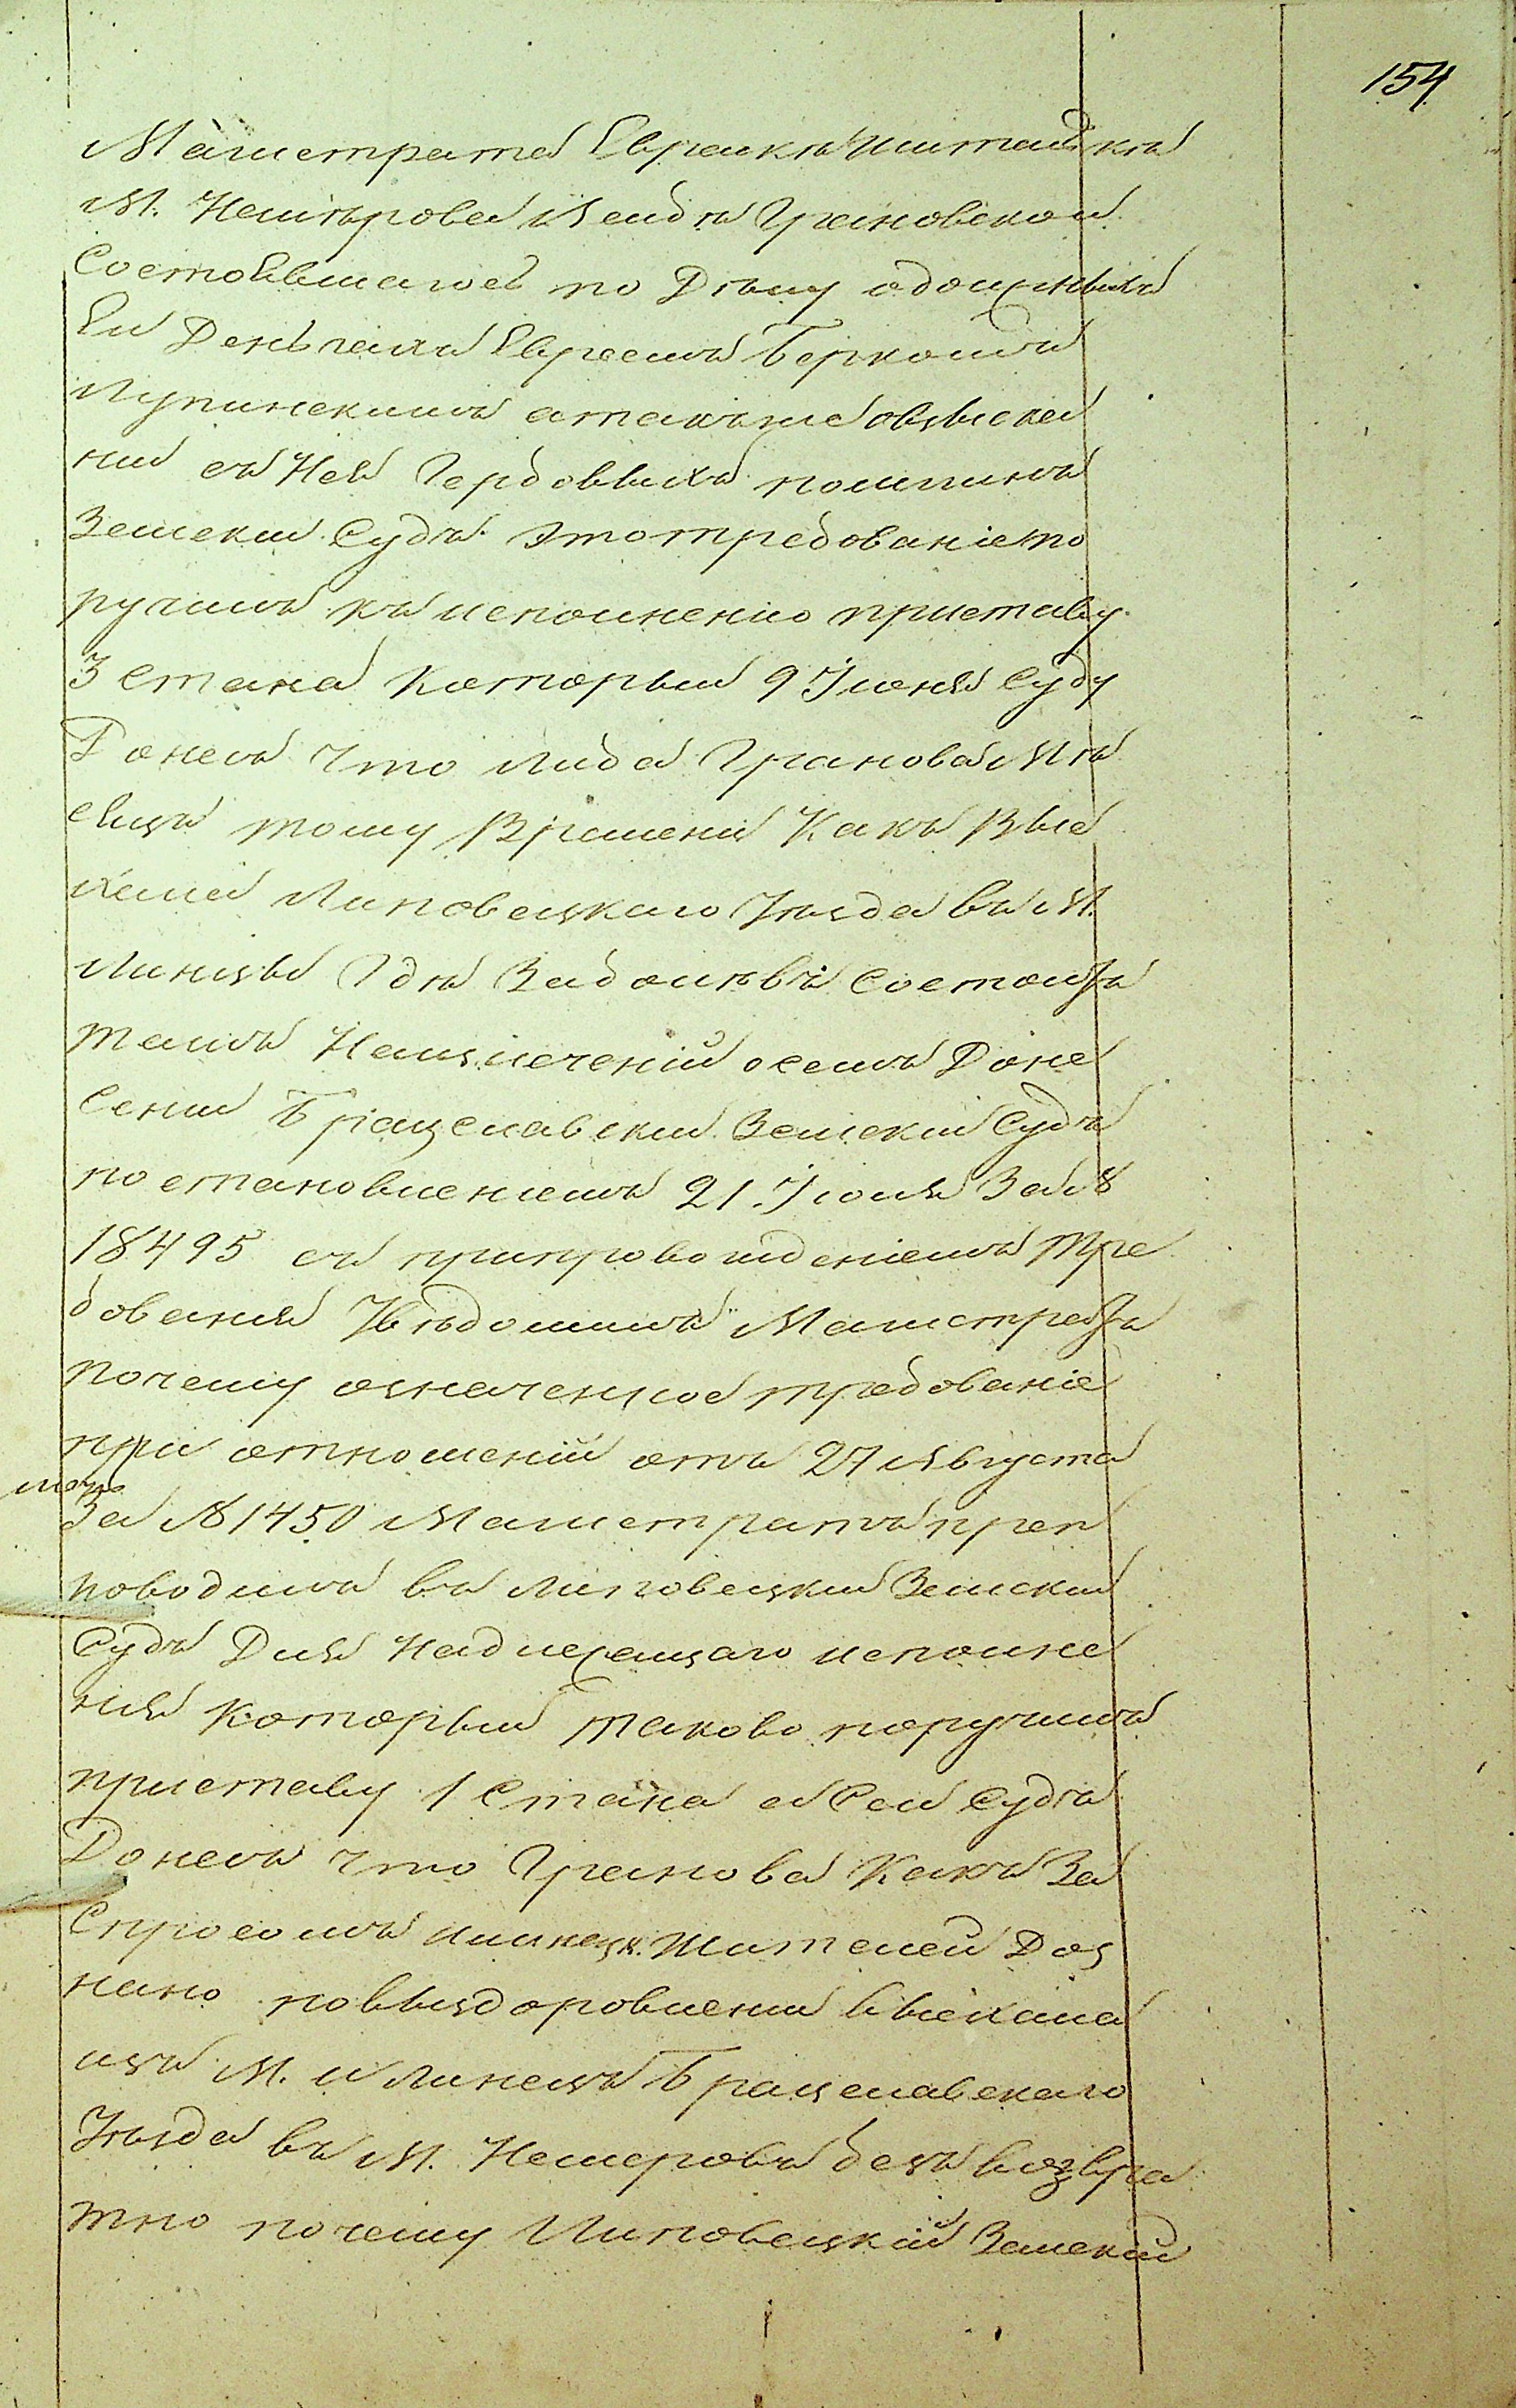 154
Магистрата Евреикѣ Житилькѣ
М. Немѣрова Леидѣ Грановской
Состоявшагося по Дѣлу одолжныхъ
Ей Деньгахъ Евреемъ Беркомъ
Лупинскимъ атакъже овзыска
нии съ Нея Гербовыхъ пошлинъ
Земскии Судъ этотребованіе по
ручилъ къ исполненію приставу
3 Стана Которыи 9 Іюня Суду
Донесъ что Лида Гранова Мѣ
сяцъ тому Времени Какъ Вые
хала Липовецкаго Уѣзда въ М.
Линцы Гдѣ Задолговъ Состоитъ
тамъ На излеченіи осемъ Доне
сении Брацславскии Земскии Судъ
постановленіемъ 21 Іюля За №
18495 съ препровожденіемъ Тре
бованія Увѣдомилъ Магистратъ
почему означенное требованіе
при отношеніи отъ 27 Августа
За № 1450 Магистратъ преп
поводилъ въ Липовецкии Земскии
Судъ Для Надлежащаго исполне
нія Которыи таково поручилъ
приставу 1 Стана а Сей Судъ
Донесъ что Гранова Какъ За
Спросомъ Жителей Доз
нано по выздоровлении выехала
изъ М. Илинецъ Брацславскаго
Уѣзда въ М. Немеровъ безъ возвра
тно почему Липовецкій Земскій